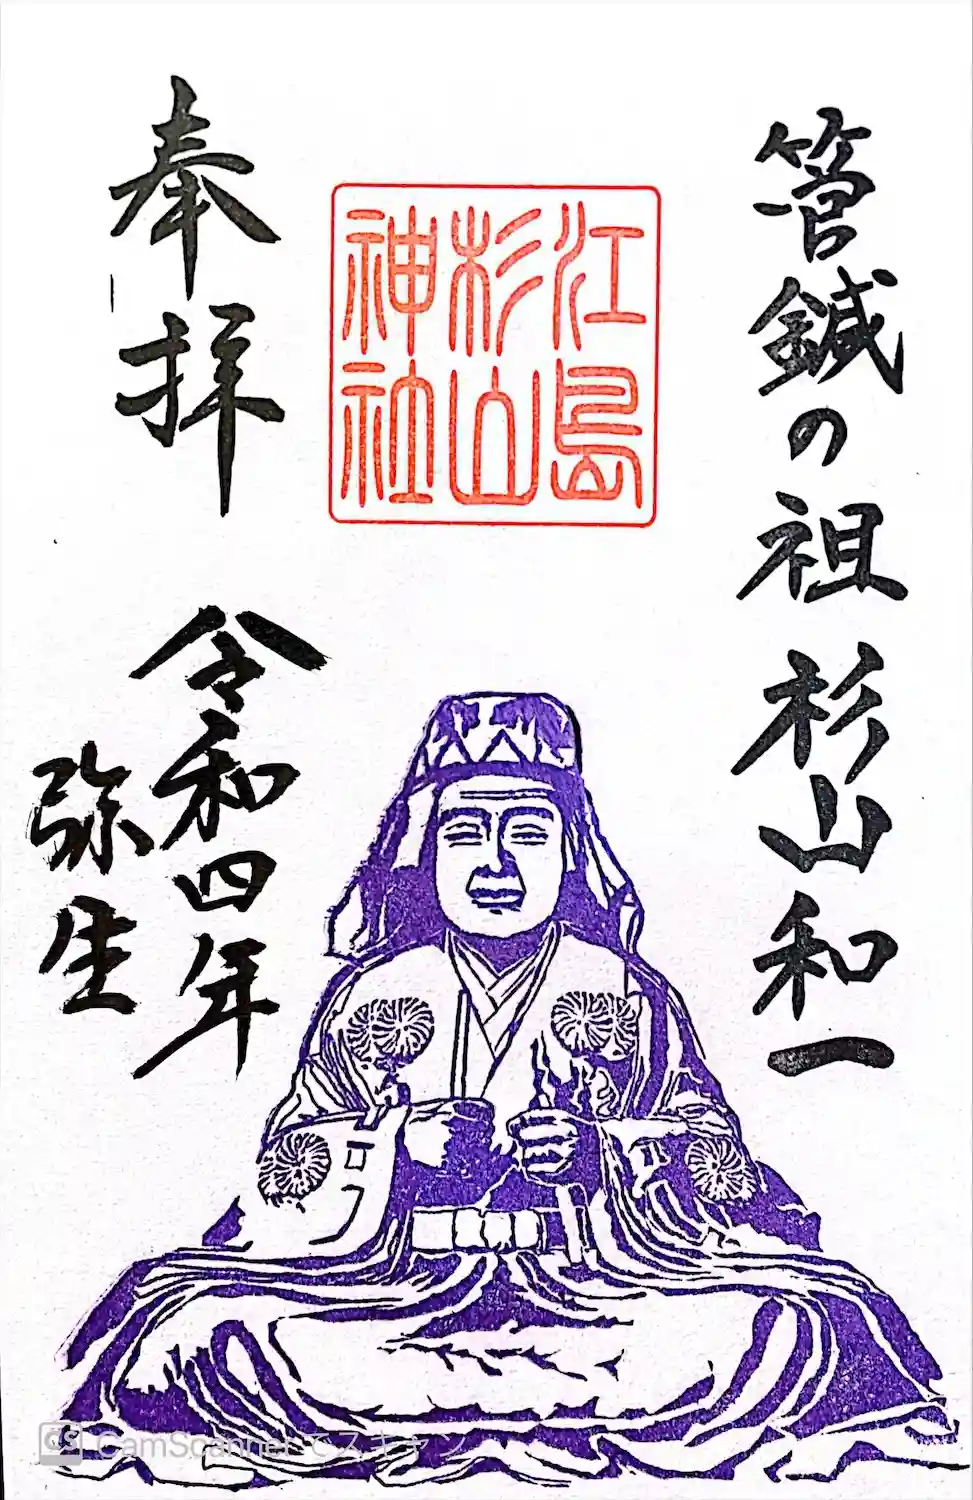 管鍼の祖 杉山和一
江島
杉山
神社
奉拝
令和四年
弥生
CS CamScannerでスキャン